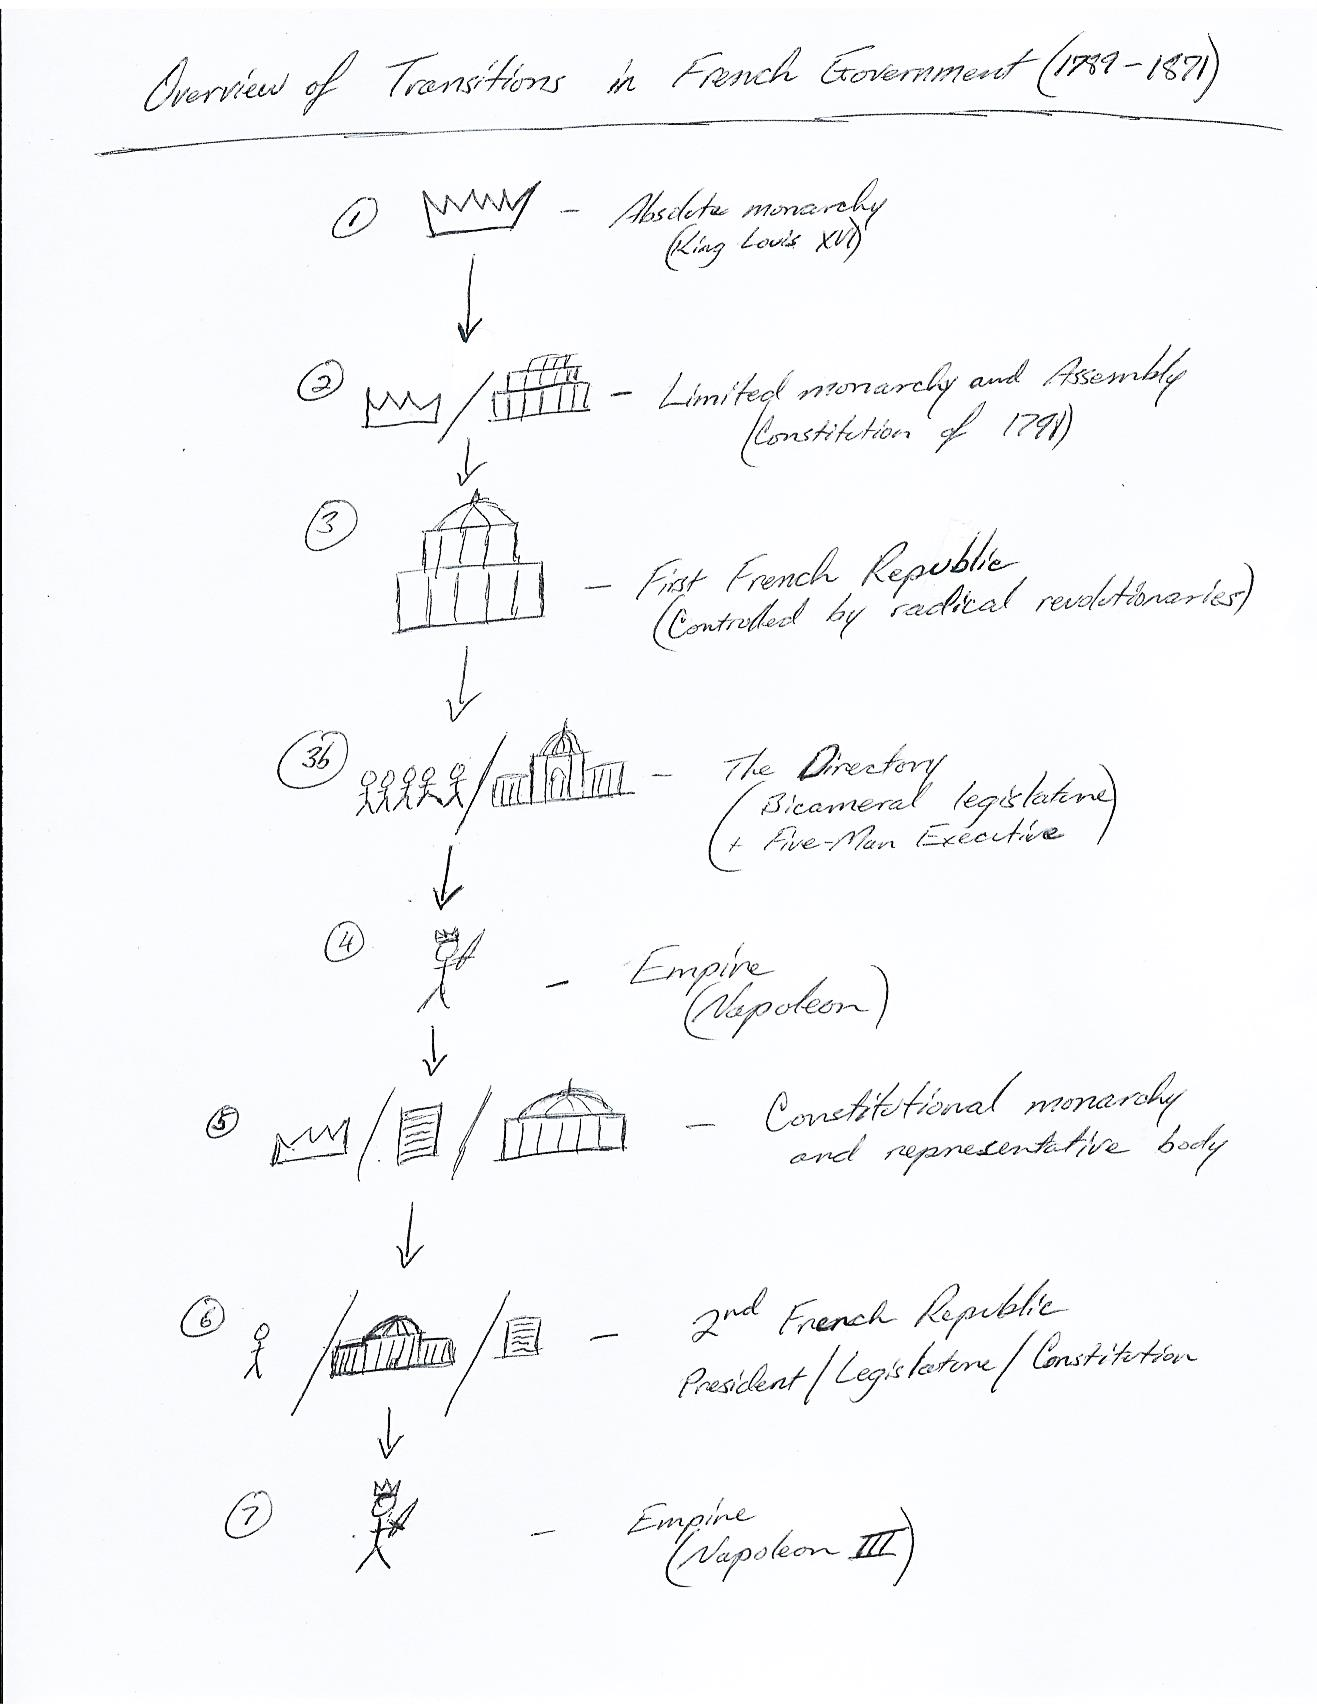 Overview of Transitions in French Government (1789-1871)
1 - Absolute monarchy
(King Louis XVI)
2 - Limited monarchy and Assembly
(Constitution of 1791)
3 - First French Republic
(Controlled by radical revolutionaries)
3b - The Directory
(Bicameral legislature
+ Five-Man Executive)
4 - Empire
(Napoleon)
5 - Constitutional monarchy
and representative body
6 - 2nd French Republic
President/Legislature/Constitution
7 - Empire
(Napoleon III)